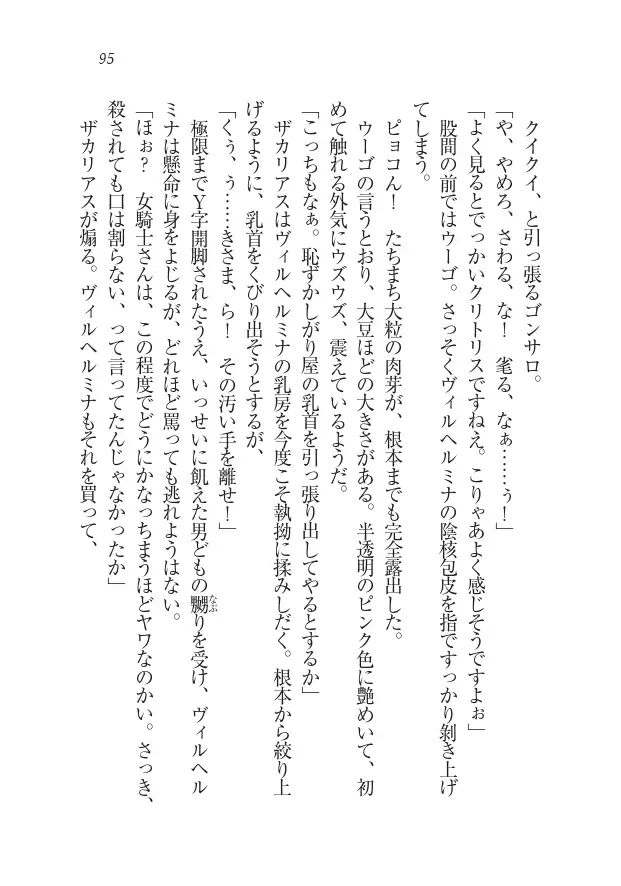 95
クイクイ、と引っ張るゴンサロ。
「や、やめろ、さわる、な！　毟る、なぁ……ぅ！」
「よく見るとでっかいクリトリスですねえ。こりゃあよく感じそうですよぉ」
股間の前ではウーゴ。さっそくヴィルヘルミナの陰核包皮を指ですっかり剝き上げ
てしまう。
ピョコん！　たちまち大粒の肉芽が、根本までも完全露出した。
ウーゴの言うとおり、大豆ほどの大きさがある。半透明のピンク色に艶めいて、初
めて触れる外気にウズウズ、震えているようだ。
「こっちもなぁ。恥ずかしがり屋の乳首を引っ張り出してやるとするか」
ザカリアスはヴィルヘルミナの乳房を今度こそ執拗に揉みしだく。根本から絞り上
げるように、乳首をくびり出そうとするが、
「くぅ、ぅ……きさま、ら！　その汚い手を離せ！」
極限までＹ字開脚されたうえ、いっせいに飢えた男どもの嬲りを受け、ヴィルヘル
ミナは懸命に身をよじるが、どれほど罵っても逃れようはない。
「ほぉ？　女騎士さんは、この程度でどうにかなっちまうほどヤワなのかい。さっき、
殺されても口は割らない、って言ってたんじゃなかったか」
ザカリアスが煽る。ヴィルヘルミナもそれを買って、